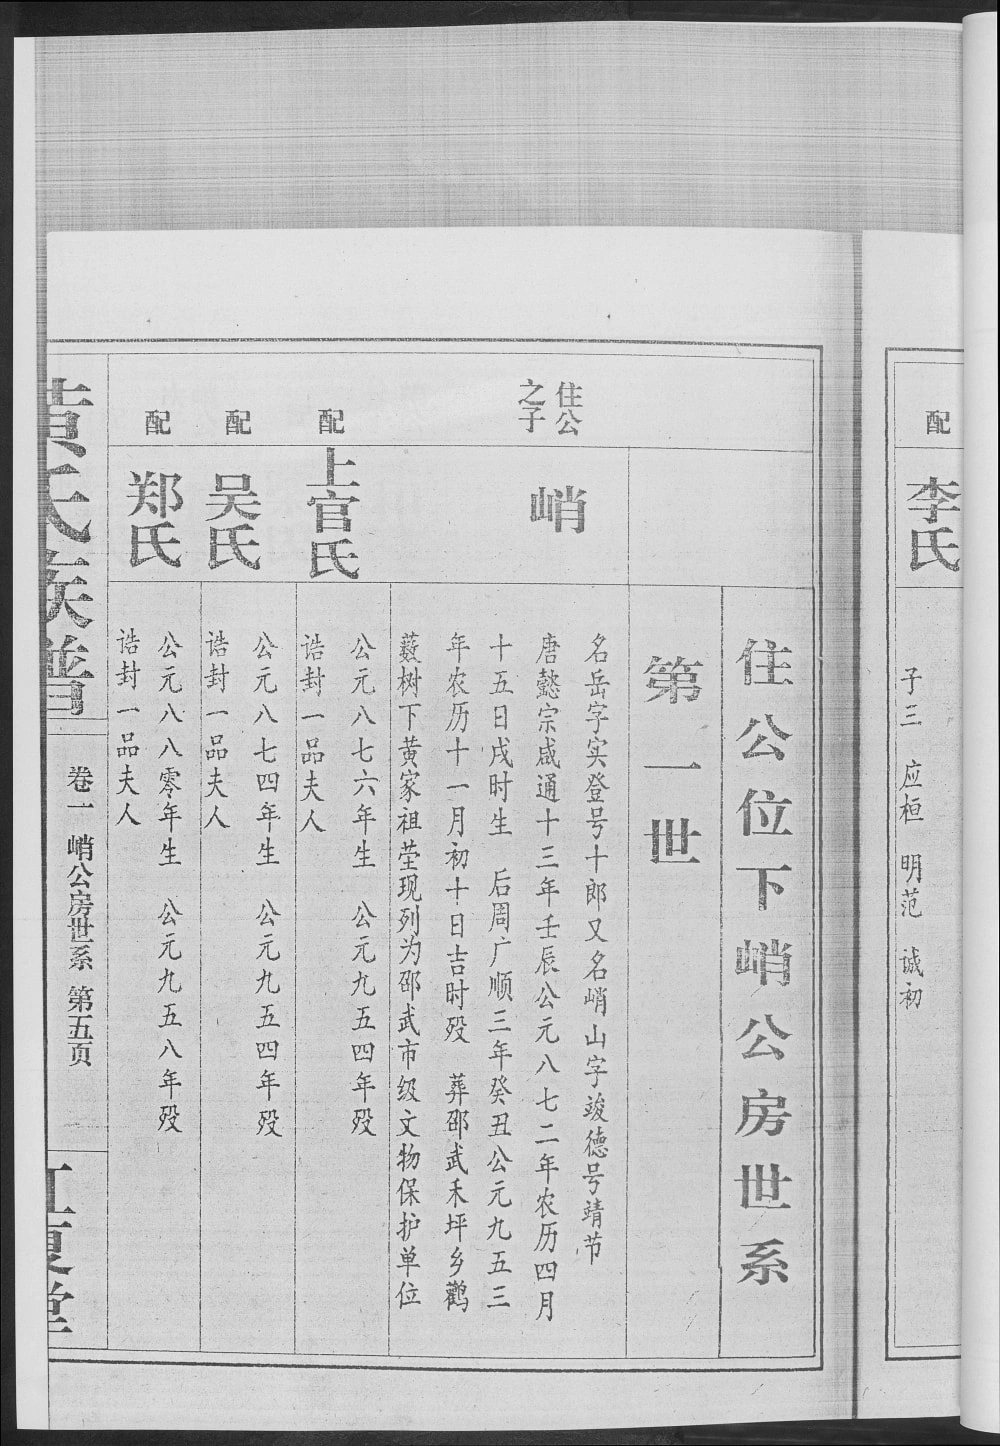 配
李氏
子三　应桓　明范　诚初
住公位下峭公房世系
第一世
住公
之子
峭
名岳字实登号十郎又名峭山字竣德号靖节
唐懿宗咸通十三年壬辰公元八七二年农历四月
十五日戌时生　后周广顺三年癸丑公元九五三
年农历十一月初十日吉时殁　葬邵武禾坪乡鹳
薮树下黄家祖茔现列为邵武市级文物保护单位
配
上官氏
公元八七六年生　公元九五四年殁
诰封一品夫人
配
吴氏
公元八七四年生　公元九五四年殁
诰封一品夫人
配
郑氏
公元八八零年生　公元九五八年殁
诰封一品夫人
黄氏族谱
卷一　峭公房世系　第五页
江夏堂